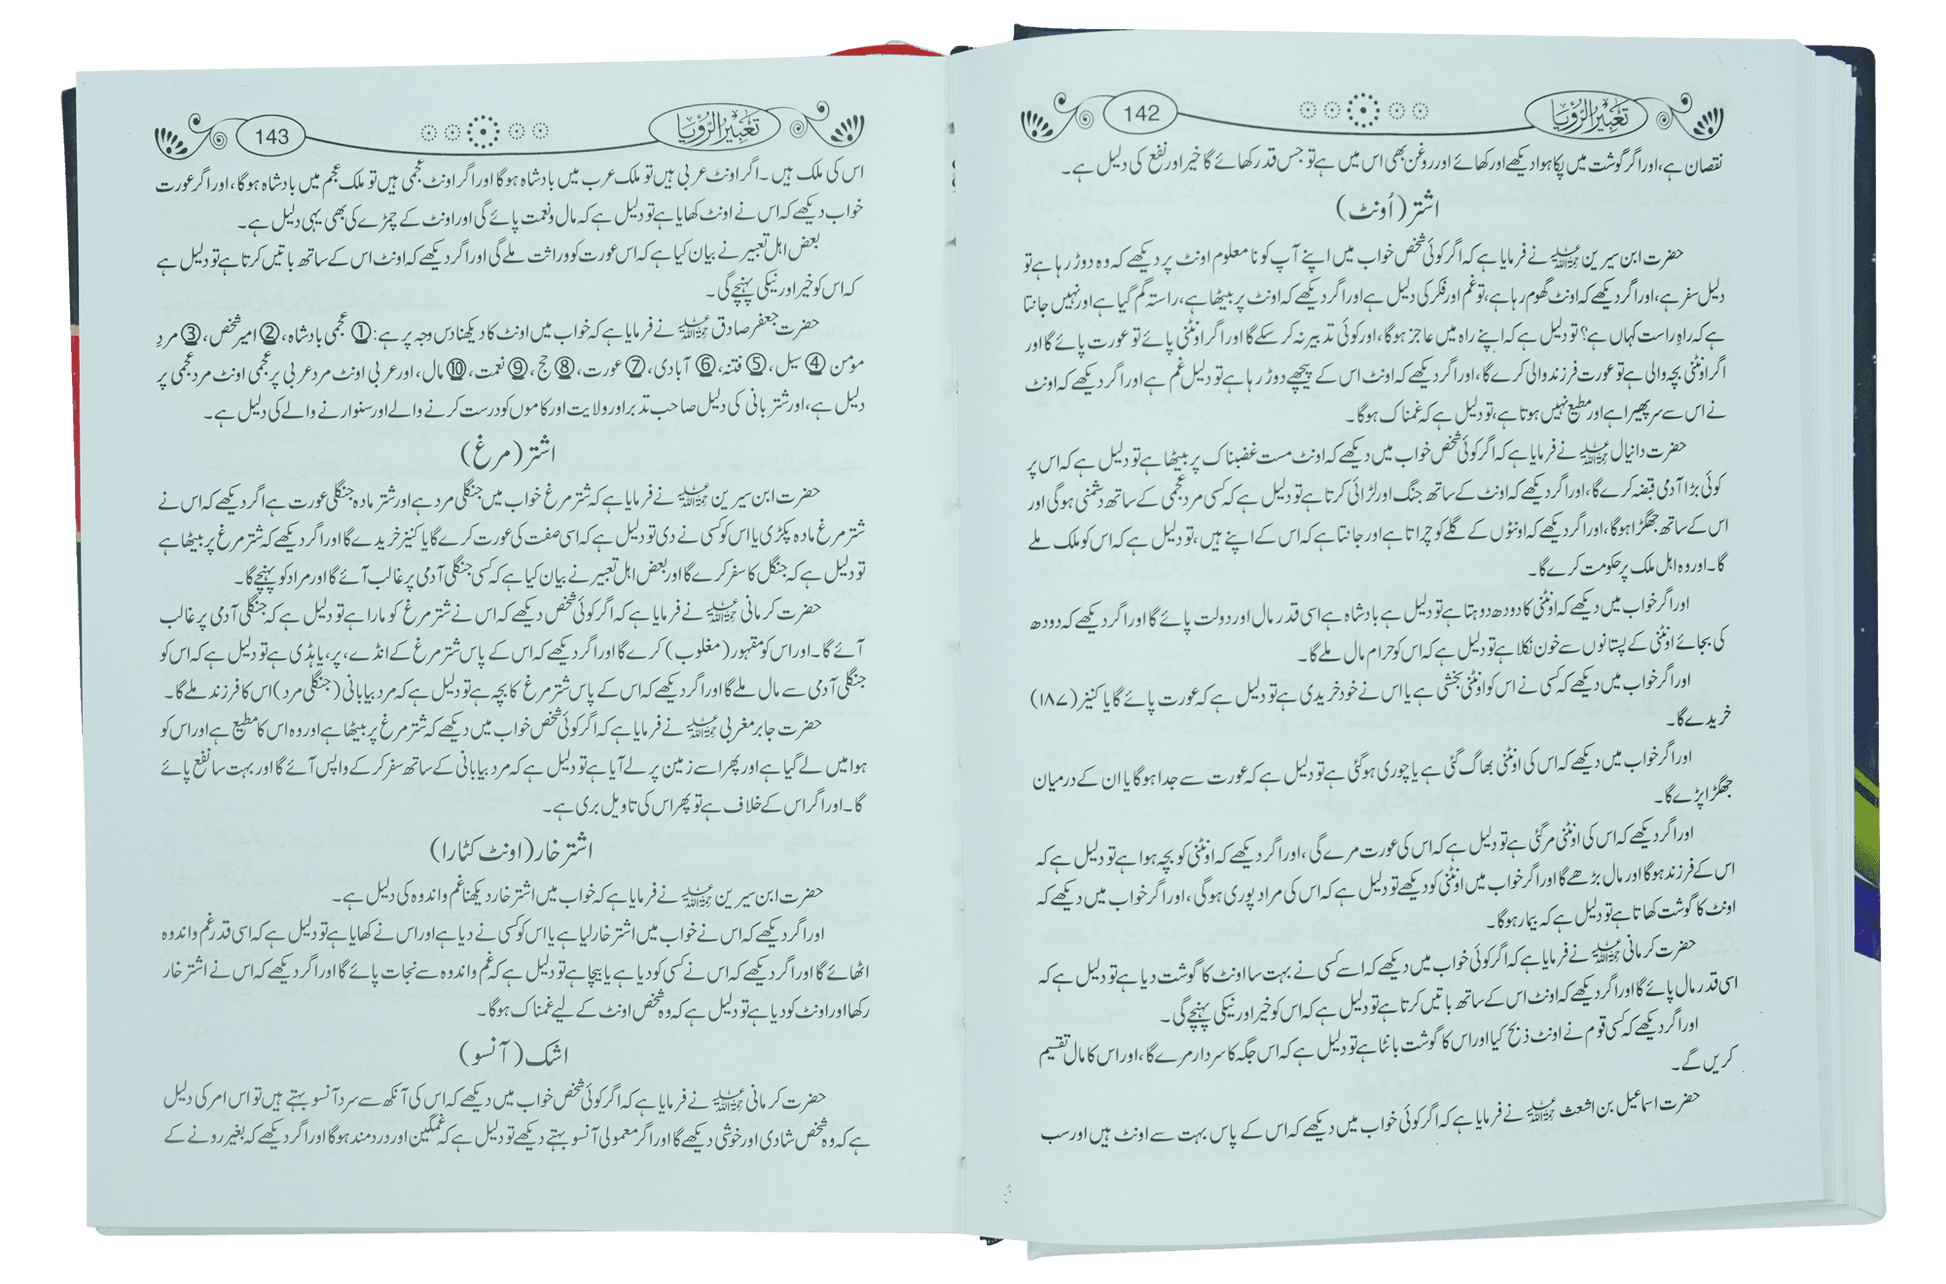 142
تعبیر الرؤیا
نقصان ہے، اور اگر گوشت میں پکا ہوا دیکھے اور کھائے اور روغن بھی اس میں ہے تو جس قدر کھائے گا خیر اور نفع کی دلیل ہے۔
اشتر (اُونٹ)
حضرت ابن سیرین رحمۃ اللہ علیہ نے فرمایا ہے کہ اگر کوئی شخص خواب میں اپنے آپ کو نا معلوم اونٹ پر دیکھے کہ وہ دوڑ رہا ہے تو
دلیل سفر ہے، اور اگر دیکھے کہ اونٹ گھوم رہا ہے، تو غم اور فکر کی دلیل ہے اور اگر دیکھے کہ اونٹ پر بیٹھا ہے، راستہ گم گیا ہے اور نہیں جانتا
ہے کہ راہ راست کہاں ہے؟ تو دلیل ہے کہ اپنے راہ میں عاجز ہوگا، اور کوئی تدبیر نہ کر سکے گا اور اگر اونٹنی پائے تو عورت پائے گا اور
اگر اونٹنی بچہ والی ہے تو عورت فرزند والی کرے گا، اور اگر دیکھے کہ اونٹ اس کے پیچھے دوڑ رہا ہے تو دلیل غم ہے اور اگر دیکھے کہ اونٹ
نے اس سے سر پھیرا ہے اور مطیع نہیں ہوتا ہے، تو دلیل ہے کہ غمناک ہوگا۔
حضرت دانیال رحمۃ اللہ علیہ نے فرمایا ہے کہ اگر کوئی شخص خواب میں دیکھے کہ اونٹ مست غضبناک پر بیٹھا ہے تو دلیل ہے کہ اس پر
کوئی بڑا آدمی قبضہ کرے گا، اور اگر دیکھے کہ اونٹ کے ساتھ جنگ اور لڑائی کرتا ہے تو دلیل ہے کہ کسی مرد عجمی کے ساتھ دشمنی ہوگی اور
اس کے ساتھ جھگڑا ہوگا، اور اگر دیکھے کہ اونٹوں کے گلے کو چراتا ہے اور جانتا ہے کہ اس کے اپنے ہیں، تو دلیل ہے کہ اس کو ملک ملے
گا۔ اور وہ اہل ملک پر حکومت کرے گا۔
اور اگر خواب میں دیکھے کہ اونٹنی کا دودھ دوہتا ہے تو دلیل ہے بادشاہ ہے اسی قدر مال اور دولت پائے گا اور اگر دیکھے کہ دودھ
کی بجائے اونٹنی کے پستانوں سے خون نکلا ہے تو دلیل ہے کہ اس کو حرام مال ملے گا۔
اور اگر خواب میں دیکھے کہ کسی نے اس کو اونٹنی بخشی ہے یا اس نے خود خریدی ہے تو دلیل ہے کہ عورت پائے گا یا کنیز (۱۸۷)
خریدے گا۔
اور اگر خواب میں دیکھے کہ اس کی اونٹنی بھاگ گئی ہے یا چوری ہوگئی ہے تو دلیل ہے کہ عورت سے جدا ہوگا یا ان کے درمیان
جھگڑا پڑے گا۔
اور اگر دیکھے کہ اس کی اونٹنی مر گئی ہے تو دلیل ہے کہ اس کی عورت مرے گی، اور اگر دیکھے کہ اونٹنی کو بچہ ہوا ہے تو دلیل ہے کہ
اس کے فرزند ہوگا اور مال بڑھے گا اور اگر خواب میں اونٹنی کو دیکھے تو دلیل ہے کہ اس کی مراد پوری ہوگی، اور اگر خواب میں دیکھے کہ
اونٹ کا گوشت کھاتا ہے تو دلیل ہے کہ بیمار ہوگا۔
حضرت کرمانی رحمۃ اللہ علیہ نے فرمایا ہے کہ اگر کوئی خواب میں دیکھے کہ اسے کسی نے بہت سا اونٹ کا گوشت دیا ہے تو دلیل ہے کہ
اسی قدر مال پائے گا اور اگر دیکھے کہ اونٹ اس کے ساتھ باتیں کرتا ہے تو دلیل ہے کہ اس کو خیر اور نیکی پہنچے گی۔
اور اگر دیکھے کہ کسی قوم نے اونٹ ذبح کیا اور اس کا گوشت بانٹا ہے تو دلیل ہے کہ اس جگہ کا سردار مرے گا، اور اس کا مال تقسیم
کریں گے۔
حضرت اسماعیل بن اشعث رحمۃ اللہ علیہ نے فرمایا ہے کہ اگر کوئی خواب میں دیکھے کہ اس کے پاس بہت سے اونٹ ہیں اور سب
143
تعبیر الرؤیا
اس کی ملک ہیں۔ اگر اونٹ عربی ہیں تو ملک عرب میں بادشاہ ہوگا اور اگر اونٹ عجمی ہیں تو ملک عجم میں بادشاہ ہوگا، اور اگر عورت
خواب دیکھے کہ اس نے اونٹ کھایا ہے تو دلیل ہے کہ مال و نعمت پائے گی اور اونٹ کے چمڑے کی بھی یہی دلیل ہے۔
بعض اہل تعبیر نے بیان کیا ہے کہ اس عورت کو وراثت ملے گی اور اگر دیکھے کہ اونٹ اس کے ساتھ باتیں کرتا ہے تو دلیل ہے
کہ اس کو خیر اور نیکی پہنچے گی۔
حضرت جعفر صادق رحمۃ اللہ علیہ نے فرمایا ہے کہ خواب میں اونٹ کا دیکھنا دس وجہ پر ہے: ① عجمی بادشاہ، ② امیر شخص، ③ مردِ
مؤمن ④ سیل، ⑤ فتنہ، ⑥ آبادی، ⑦ عورت، ⑧ حج، ⑨ نعمت، ⑩ مال، اور عربی اونٹ مرد عربی پر عجمی اونٹ مرد عجمی پر
دلیل ہے، اور شتر بانی کی دلیل صاحب تدبر اور ولایت اور کاموں کو درست کرنے والے اور سنوارنے والے کی دلیل ہے۔
اشتر (مرغ)
حضرت ابن سیرین رحمۃ اللہ علیہ نے فرمایا ہے کہ شتر مرغ خواب میں جنگلی مرد ہے اور شتر مادہ جنگلی عورت ہے اگر دیکھے کہ اس نے
شتر مرغ مادہ پکڑی یا اس کو کسی نے دی تو دلیل ہے کہ اسی صفت کی عورت کرے گا یا کنیز خریدے گا اور اگر دیکھے کہ شتر مرغ پر بیٹھا ہے
تو دلیل ہے کہ جنگل کا سفر کرے گا اور بعض اہل تعبیر نے بیان کیا ہے کہ کسی جنگلی آدمی پر غالب آئے گا اور مراد کو پہنچے گا۔
حضرت کرمانی رحمۃ اللہ علیہ نے فرمایا ہے کہ اگر کوئی شخص دیکھے کہ اس نے شتر مرغ کو مارا ہے تو دلیل ہے کہ جنگلی آدمی پر غالب
آئے گا۔ اور اس کو مقہور (مغلوب) کرے گا اور اگر دیکھے کہ اس کے پاس شتر مرغ کے انڈے، پر، یا ہڈی ہے تو دلیل ہے کہ اس کو
جنگلی آدمی سے مال ملے گا اور اگر دیکھے کہ اس کے پاس شتر مرغ کا بچہ ہے تو دلیل ہے کہ مرد بیابانی (جنگلی مرد) اس کا فرزند ملے گا۔
حضرت جابر مغربی رحمۃ اللہ علیہ نے فرمایا ہے کہ اگر کوئی شخص خواب میں دیکھے کہ شتر مرغ پر بیٹھا ہے اور وہ اس کا مطیع ہے اور اس کو
ہوا میں لے گیا ہے اور پھر اسے زمین پر لے آیا ہے تو دلیل ہے کہ مرد بیابانی کے ساتھ سفر کر کے واپس آئے گا اور بہت سا نفع پائے
گا۔ اور اگر اس کے خلاف ہے تو پھر اس کی تاویل بری ہے۔
اشتر خار (اونٹ کٹارا)
حضرت ابن سیرین رحمۃ اللہ علیہ نے فرمایا ہے کہ خواب میں اشتر خار دیکھنا غم و اندوہ کی دلیل ہے۔
اور اگر دیکھے کہ اس نے خواب میں اشتر خار لیا ہے یا اس کو کسی نے دیا ہے اور اس نے کھایا ہے تو دلیل ہے کہ اسی قدر غم و اندوہ
اٹھائے گا اور اگر دیکھے کہ اس نے کسی کو دیا ہے یا بیچا ہے تو دلیل ہے کہ غم و اندوہ سے نجات پائے گا اور اگر دیکھے کہ اس نے اشتر خار
رکھا اور اونٹ کو دیا ہے تو دلیل ہے کہ وہ شخص اونٹ کے لیے غمناک ہوگا۔
اشک (آنسو)
حضرت کرمانی رحمۃ اللہ علیہ نے فرمایا ہے کہ اگر کوئی شخص خواب میں دیکھے کہ اس کی آنکھ سے سرد آنسو بہتے ہیں تو اس امر کی دلیل
ہے کہ وہ شخص شادی اور خوشی دیکھے گا اور اگر معمولی آنسو بہتے دیکھے تو دلیل ہے کہ غمگین اور درد مند ہوگا اور اگر دیکھے کہ بغیر رونے کے